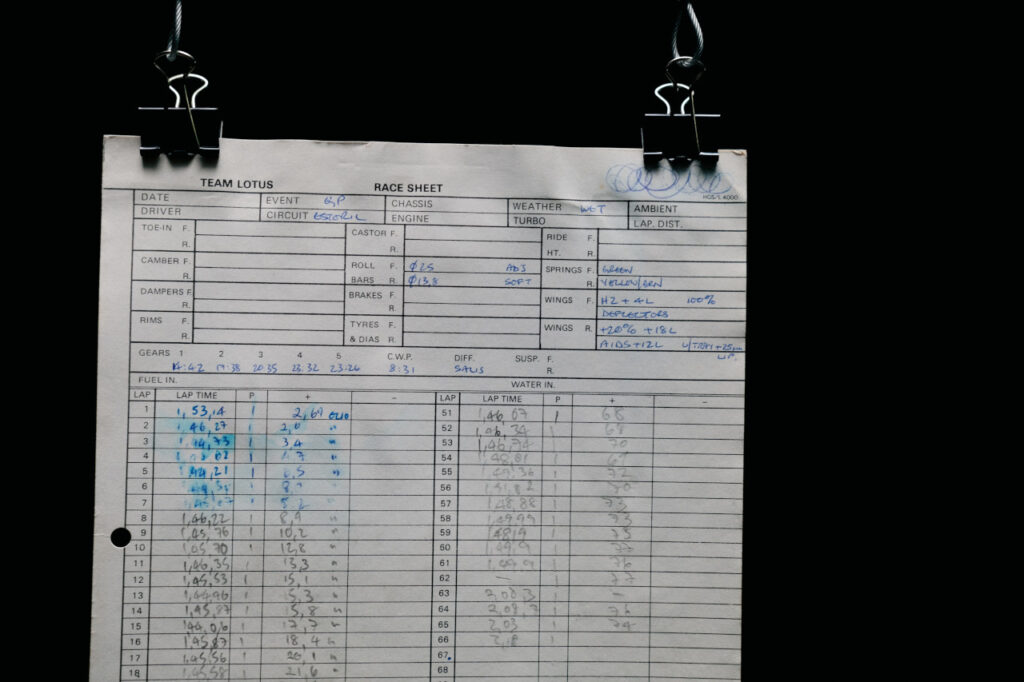 TEAM LOTUS RACE SHEET
HGS/L 4000
DATE EVENT GP CHASSIS WEATHER WET AMBIENT
DRIVER CIRCUIT ESTORIL ENGINE TURBO LAP. DIST.
TOE-IN F. CASTOR F. RIDE F.
R. R. HT. R.
CAMBER F. ROLL F. Ø25 ADJ SPRINGS F. GREEN
R. BARS R. Ø13,8 SOFT R. YELLOW/GRN
DAMPERS F. BRAKES F. WINGS F. H2 + 4L 100%
R. R. DEFLECTORS
RIMS F. TYRES F. WINGS R. +20% +18L
R. & DIAS R.
GEARS 1 2 3 4 5 C.W.P. DIFF. SUSP. F.
14:42 20:35 23:32 8:31 SALIS R.
FUEL IN. WATER IN.
LAP LAP TIME P + − LAP LAP TIME P + −
1 1,53,14 1 2,69 ELIO 51 1,46,07 1 68
2 1,46,27 1 52 1,46,34 1
3 1 3,4 " 53 1,46,74 1 70
4 1 " 54 1
5 1 " 55 1 72
6 1 56 1
7 1 57 1,48,88 1 73
8 1,46,22 1 8,9 " 58 1,49,99 1 73
9 1,45,76 1 10,2 " 59 1 75
10 1,45,70 1 12,8 " 60 1,49,9 1
11 1,46,35 1 13,3 " 61 1,49,9 1 76
12 1,45,53 1 15,1 " 62 — 77
13 1,44,96 1 " 63 2,08,3 1 −
14 1,45,87 1 15,8 " 64 1
15 1,44,06 1 17,7 " 65 2,03 1 74
16 1,45,87 1 18,4 " 66 2,18 1
17 1,45,56 1 20,1 " 67
18 1,45,58 1 21,6 " 68